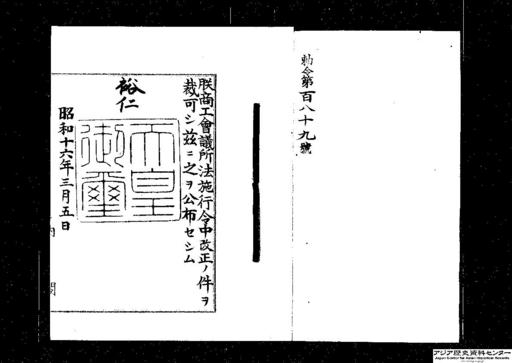 勅令第百八十九號
朕商工會議所法施行令中改正ノ件ヲ
裁可シ茲ニ之ヲ公布セシム
裕仁
天皇
御璽
昭和十六年三月五日
内閣
アジア歴史資料センター
Japan Center for Asian Historical Records